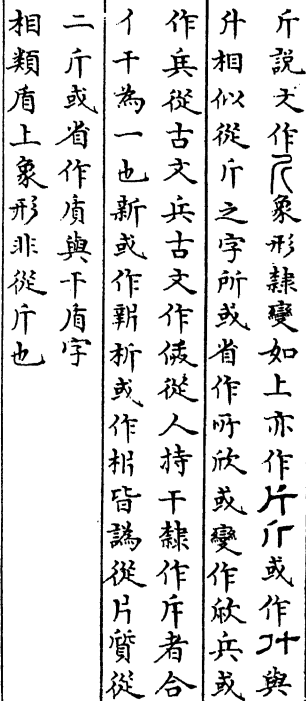 斤說文作𠫔象形隸變如上亦作斤斤或作廾與
升相似從斤之字所或省作所欣或變作欣兵或
作兵從古文兵古文作㑔從人持干隸作斥者合
亻干為一也新或作新析或作析皆譌從片質從
二斤或省作盾與干盾字
相類盾上象形非從斤也